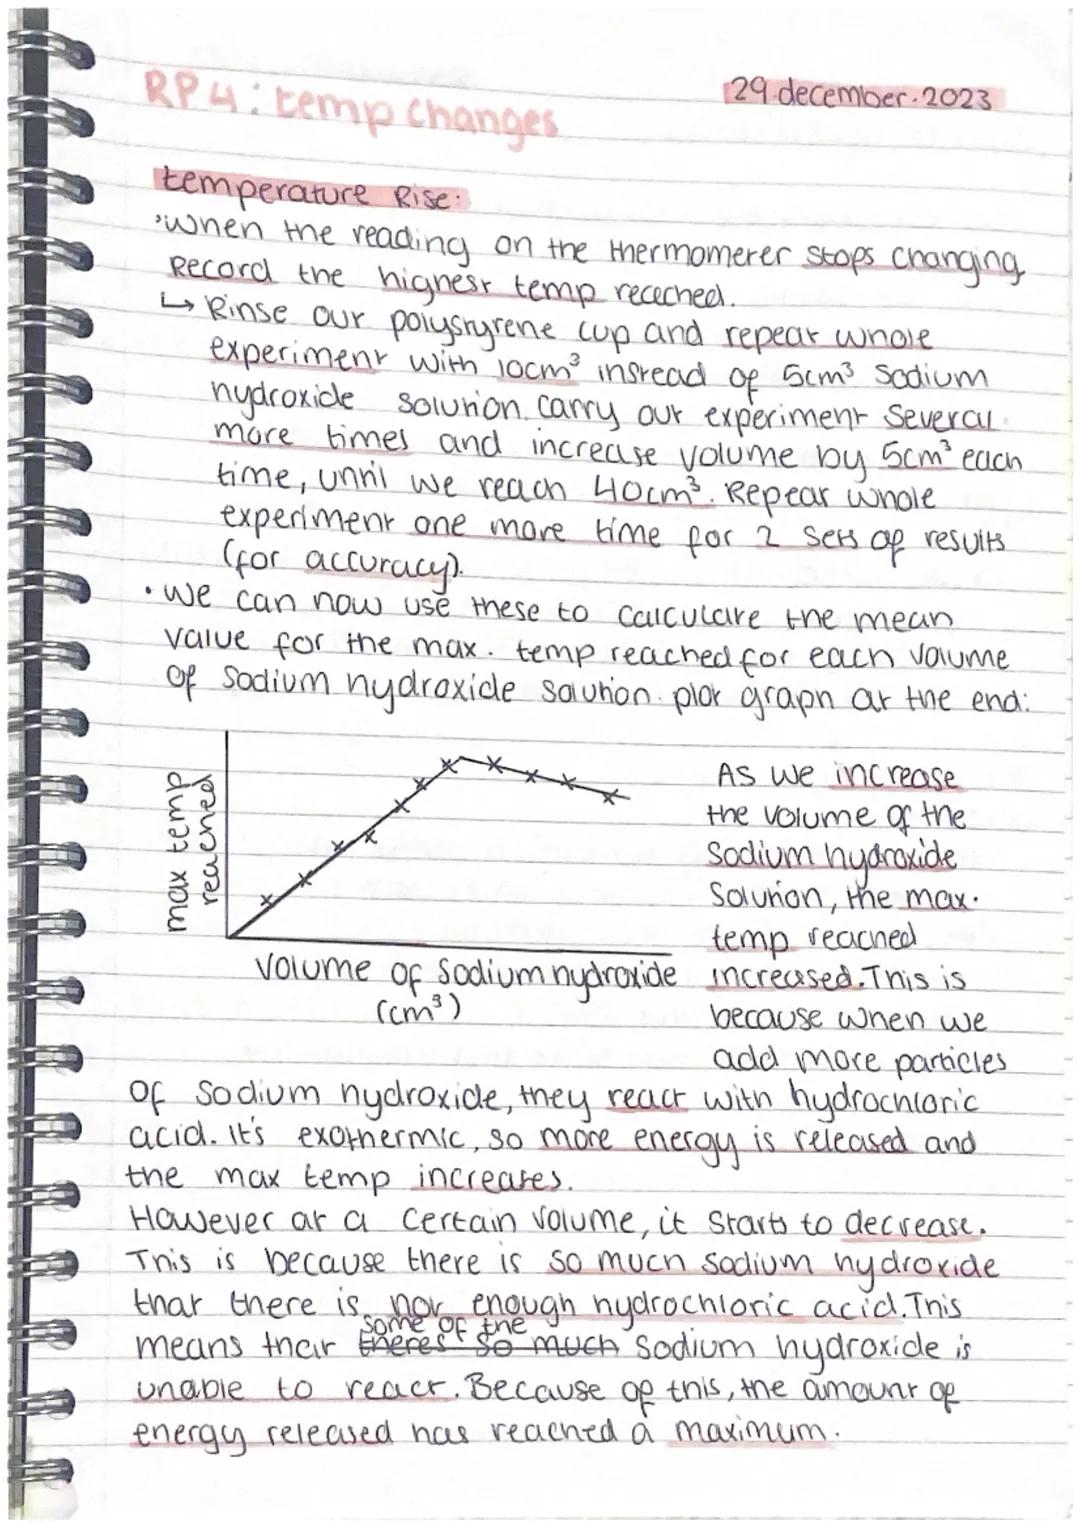 RP4: temp changes
29.december.2023
temperature Rise:
'When the reading on the thermomerer stops changing
Record the highest temp recached.
↳ Rinse our polystyrene cup and repeat whole
experiment with 10cm³ instead of 5cm³ Sodium
hydroxide solution. Carry out experiment several
more times and increase volume by 5cm³ each
time, until we reach 40cm³. Repeat whole
experiment one more time for 2 sets of results
(for accuracy).
• We can now use these to calculate the mean
value for the max. temp reached for each volume
of Sodium hydroxide solution. plot graph at the end:
max temp
reached
Volume of Sodium hydroxide
(cm³)
As we increase
the volume of the
Sodium hydroxide
Solution, the max.
temp reached
increased. This is
because when we
add more particles
of sodium hydroxide, they react with hydrochloric
acid. It's exothermic, so more energy is released and
the max temp increases.
However at a certain volume, it starts to decrease.
This is because there is so much sodium hydroxide
that there is not enough hydrochloric acid. This
some of the
means their theres so much sodium hydroxide is
unable to react. Because of this, the amount of
energy released has reached a maximum.